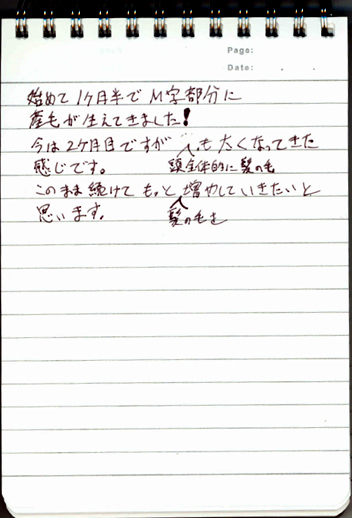 Page:
Date: . .
始めて1ヶ月半でM字部分に
産毛が生えてきました!
今は2ヶ月目ですが も太くなってきた
感じです。 頭全体的に髪の毛
このまま続けてもっと増やしていきたいと
思います。 髪の毛を